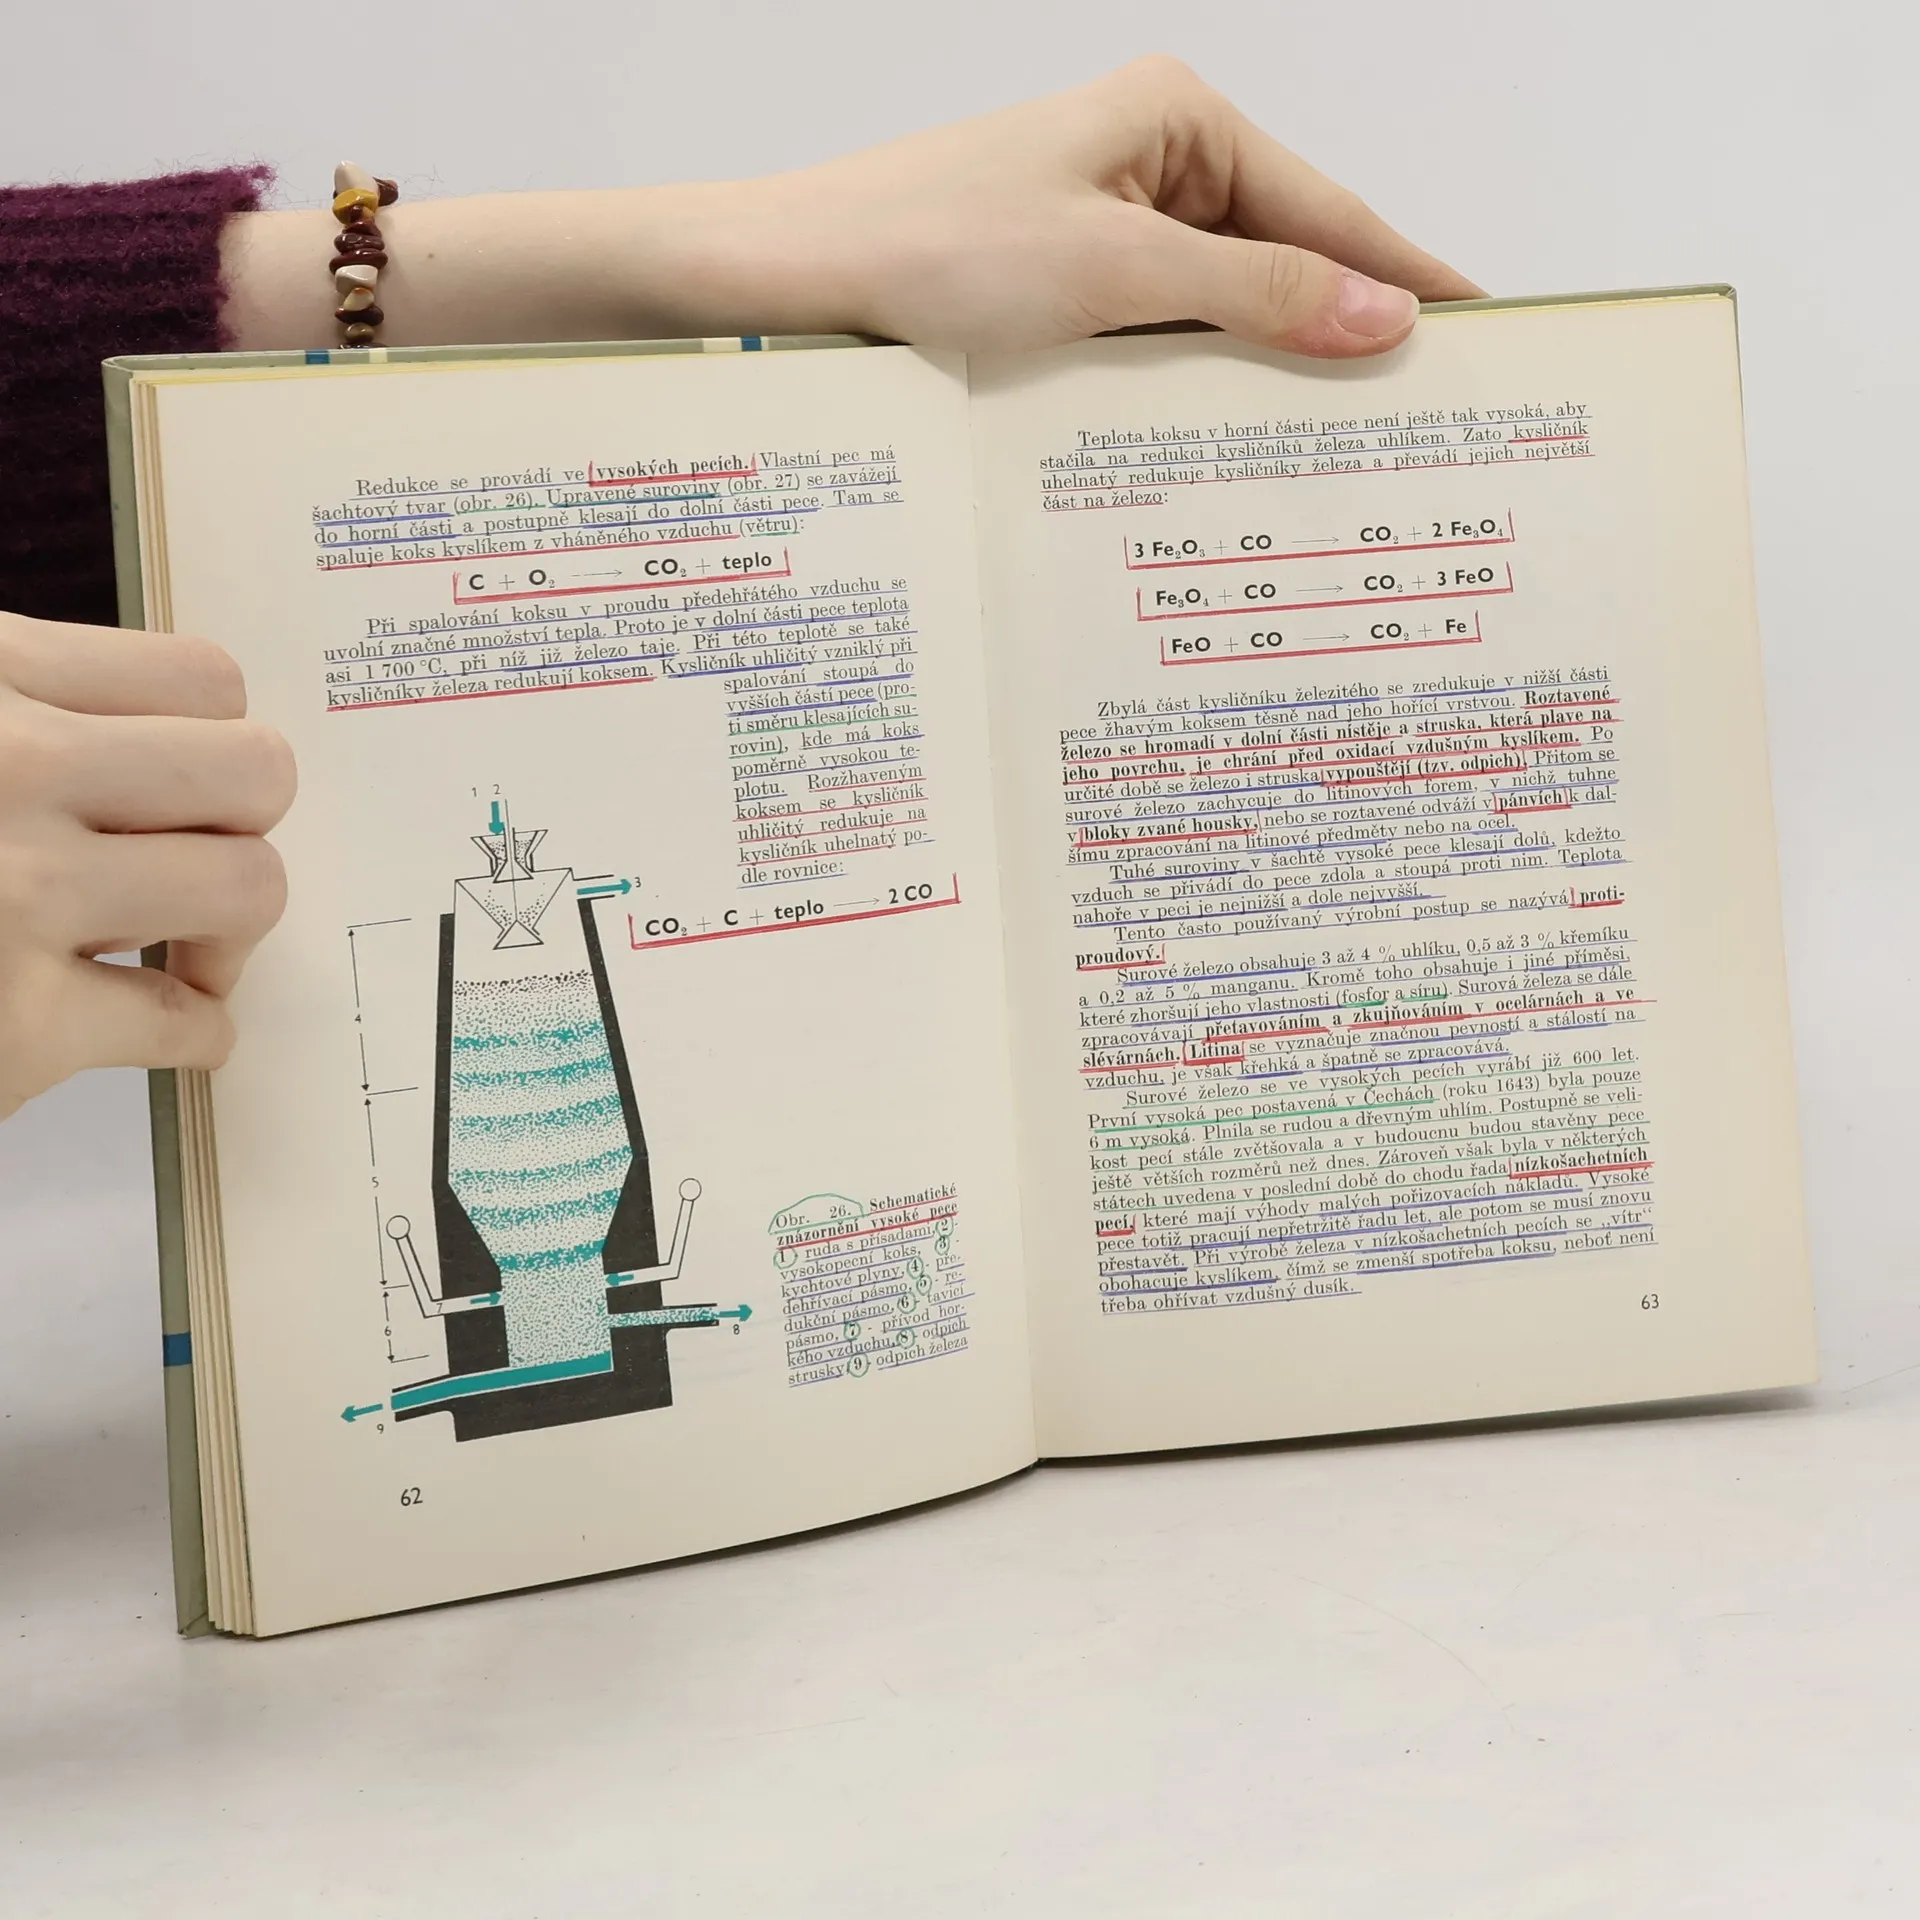 Redukce se provádí ve vysokých pecích. Vlastní pec má
šachtový tvar (obr. 26). Upravené suroviny (obr. 27) se zavážejí
do horní části a postupně klesají do dolní části pece. Tam se
spaluje koks kyslíkem z vháněného vzduchu (větru):
C + O₂ ⟶ CO₂ + teplo
Při spalování koksu v proudu předehřátého vzduchu se
uvolní značné množství tepla. Proto je v dolní části pece teplota
asi 1 700 °C, při níž již železo taje. Při této teplotě se také
kysličníky železa redukují koksem. Kysličník uhličitý vzniklý při
spalování stoupá do
vyšších částí pece (pro-
ti směru klesajících su-
rovin), kde má koks
poměrně vysokou te-
plotu. Rozžhaveným
koksem se kysličník
uhličitý redukuje na
kysličník uhelnatý po-
dle rovnice:
CO₂ + C + teplo ⟶ 2 CO
1 2
3
4
5
6
7
8
9
Obr. 26. Schematické
znázornění vysoké pece
1 - ruda s přísadami, 2 -
vysokopecní koks, 3 -
kychtové plyny, 4 - pře-
dehřívací pásmo, 5 - re-
dukční pásmo, 6 - tavicí
pásmo, 7 - přívod hor-
kého vzduchu, 8 - odpich
strusky, 9 - odpich železa
62
Teplota koksu v horní části pece není ještě tak vysoká, aby
stačila na redukci kysličníků železa uhlíkem. Zato kysličník
uhelnatý redukuje kysličníky železa a převádí jejich největší
část na železo:
3 Fe₂O₃ + CO ⟶ CO₂ + 2 Fe₃O₄
Fe₃O₄ + CO ⟶ CO₂ + 3 FeO
FeO + CO ⟶ CO₂ + Fe
Zbylá část kysličníku železitého se zredukuje v nižší části
pece žhavým koksem těsně nad jeho hořící vrstvou. Roztavené
železo se hromadí v dolní části nístěje a struska, která plave na
jeho povrchu, je chrání před oxidací vzdušným kyslíkem. Po
určité době se železo i struska vypouštějí (tzv. odpich). Přitom se
surové železo zachycuje do litinových forem, v nichž tuhne
v bloky zvané housky, nebo se roztavené odváží v pánvích k dal-
šímu zpracování na litinové předměty nebo na ocel.
Tuhé suroviny v šachtě vysoké pece klesají dolů, kdežto
vzduch se přivádí do pece zdola a stoupá proti nim. Teplota
nahoře v peci je nejnižší a dole nejvyšší.
Tento často používaný výrobní postup se nazývá proti-
proudový.
Surové železo obsahuje 3 až 4 % uhlíku, 0,5 až 3 % křemíku
a 0,2 až 5 % manganu. Kromě toho obsahuje i jiné příměsi,
které zhoršují jeho vlastnosti (fosfor a síru). Surová železa se dále
zpracovávají přetavováním a zkujňováním v ocelárnách a ve
slévárnách. Litina se vyznačuje značnou pevností a stálostí na
vzduchu, je však křehká a špatně se zpracovává.
Surové železo se ve vysokých pecích vyrábí již 600 let.
První vysoká pec postavená v Čechách (roku 1643) byla pouze
6 m vysoká. Plnila se rudou a dřevným uhlím. Postupně se veli-
kost pecí stále zvětšovala a v budoucnu budou stavěny pece
ještě větších rozměrů než dnes. Zároveň však byla v některých
státech uvedena v poslední době do chodu řada nízkošachetních
pecí, které mají výhody malých pořizovacích nákladů. Vysoké
pece totiž pracují nepřetržitě řadu let, ale potom se musí znovu
přestavět. Při výrobě železa v nízkošachetních pecích se „vítr“
obohacuje kyslíkem, čímž se zmenší spotřeba koksu, neboť není
třeba ohřívat vzdušný dusík.
63